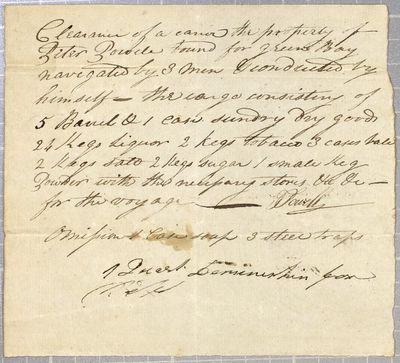 Clearance of a canoe the property of
Peter Powell bound for Green Bay
navigated by 3 men & conducted by
himself — the cargo consisting of
5 Barrel & 1 case sundry dry goods
24 Kegs liquor 2 kegs tobacco 3 cases
2 Kegs salt 2 Kegs sugar 1 small Keg
Powder with the necessary stores &c &c —
for the voyage — Powell
Omission 1 Case soap 3 steel traps
1 Quart